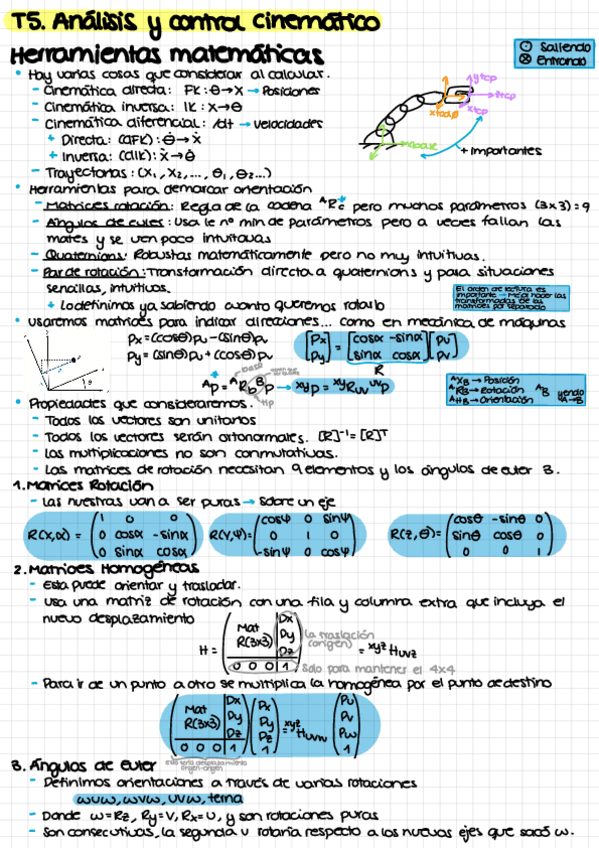 T5. Análisis y control cinemático
Herramientas matemáticas
⊙ Saliendo
⊗ Entrando
• Hay varias cosas que considerar al calcular.
- Cinemática directa: FK: θ→X → Posiciones
- Cinemática inversa: IK: X→θ
- Cinemática diferencial: /dt → velocidades
+ Directa: (dFK): θ̇→ẋ
+ Inversa: (dIK): ẋ→θ̇
- Trayectorias: (X₁, X₂, ..., θ₁, θ₂...)
ytcp
ztcp
xtcp
+ importantes
• Herramientas para demarcar orientación
- Matrices rotación: Regla de la cadena ᴬRc pero muchos parámetros (3x3)=9
- Ángulos de euler: Usa le nº min de parámetros pero a veces fallan las
mates y se ven poco intuitavas
- Quaternions: Robustas matemáticamente pero no muy intuitivas.
- Par de rotación: Transformación directa a quaternions y para situaciones
sencillas, intuitivas.
+ Lo definimos ya sabiendo cuanto queremos rotarlo
El orden de lectura es
importante → Mejor hacer las
transformadas de las
matrices por separado
• Usaremos matrices para indicar direcciones... como en mecánica de máquinas
Px = (cosθ)Pu - (sinθ)Pv
Py = (sinθ)Pu + (cosθ)Pv
[Px Py] = [cosα -sinα sinα cosα] [Pu Pv]
R
ᴬP = ᴬR_B ᴮP → ˣʸP = ˣʸRuv ᵘᵛP
ᴬX_B → Posición
ᴬR_B → Rotación
ᴬH_B → Orientación
ᴬB yendo
A→B
• Propiedades que consideraremos.
- Todos los vectores son unitarios
- Todos los vectores serán ortonormales. [R]⁻¹ = [R]ᵀ
- Las multiplicaciones no son conmutativas.
- Las matrices de rotación necesitan 9 elementos y los ángulos de euler 3.
1. Matrices Rotación
- Las nuestras van a ser puras → sobre un eje
R(X,α) = (1 0 0 0 cosα -sinα 0 sinα cosα)
R(Y,Ψ) = (cosΨ 0 sinΨ 0 1 0 -sinΨ 0 cosΨ)
R(Z,θ) = (cosθ -sinθ 0 sinθ cosθ 0 0 0 1)
2. Matrices Homogéneas
- Esta puede orientar y trasladar.
- Usa una matriz de rotación con una fila y columna extra que incluya el
nuevo desplazamiento
H = (Mat R(3x3) Dx Dy Dz 0 0 0 1) = xyz Huvz
la traslación
(origen)
Solo para mantener el 4x4
- Para ir de un punto a otro se multiplica la homogénea por el punto de destino
(Mat R(3x3) Dx Dy Dz 0 0 0 1) (Px Py Pz 1) = xyz Huvw (Pu Pv Pw 1)
3. Ángulos de Euler
- Definimos orientaciones a través de varias rotaciones
wuw, wvw, uvw, terna
- Donde w=Rz, Ry=V, Rx=U, y son rotaciones puras
- Son consecutivas, la segunda v rotaría respecto a los nuevos ejes que sacó w.